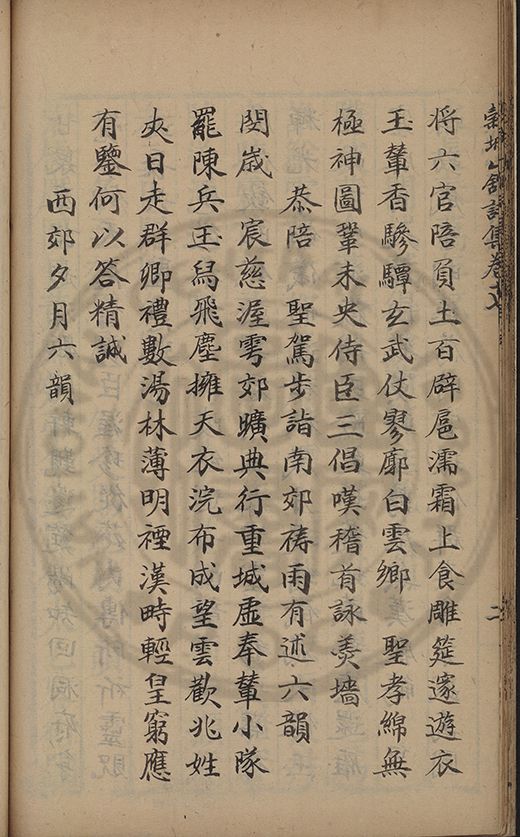 穀城山舘詩集卷
二
将六官陪負土百辟扈濡霜上食雕筵邃遊衣
玉輦香驂驔玄武仗寥廓白雲鄉 聖孝綿無
極神圖鞏未央侍臣三倡嘆稽首詠羮墻
恭陪 聖駕步詣南郊祷雨有述六韻
閔歲 宸慈渥雩郊曠典行重城虛奉輦小隊
罷陳兵玉舄飛塵擁天衣浣布成望雲歡兆姓
夾日走群卿禮數湯林薄明禋漢時輕皇窮應
有鑒何以答精誠
西郊夕月六韻